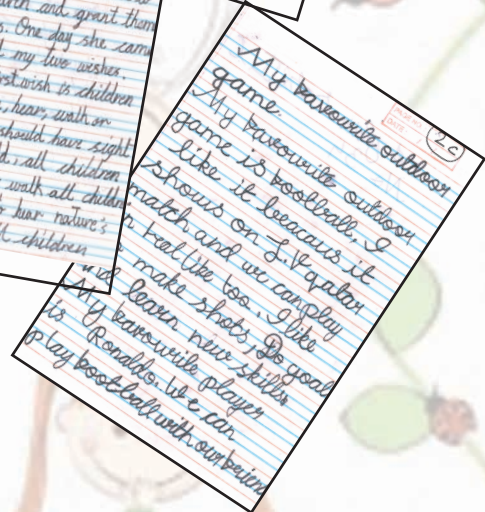 and grant them
One day she came
my two wishes.
wish is children
hear, walk on
should have sight
all children
walk all
hear nature's
children
2c
My favourite outdoor
game.
My favourite outdoor
game is football, I
like it beacaus it
shows on T.V qatar
match and we can play
feel like too. I like
make shots, Do goal
learn new skills
My favourite player
is Ronaldo. We can
play football with our friend